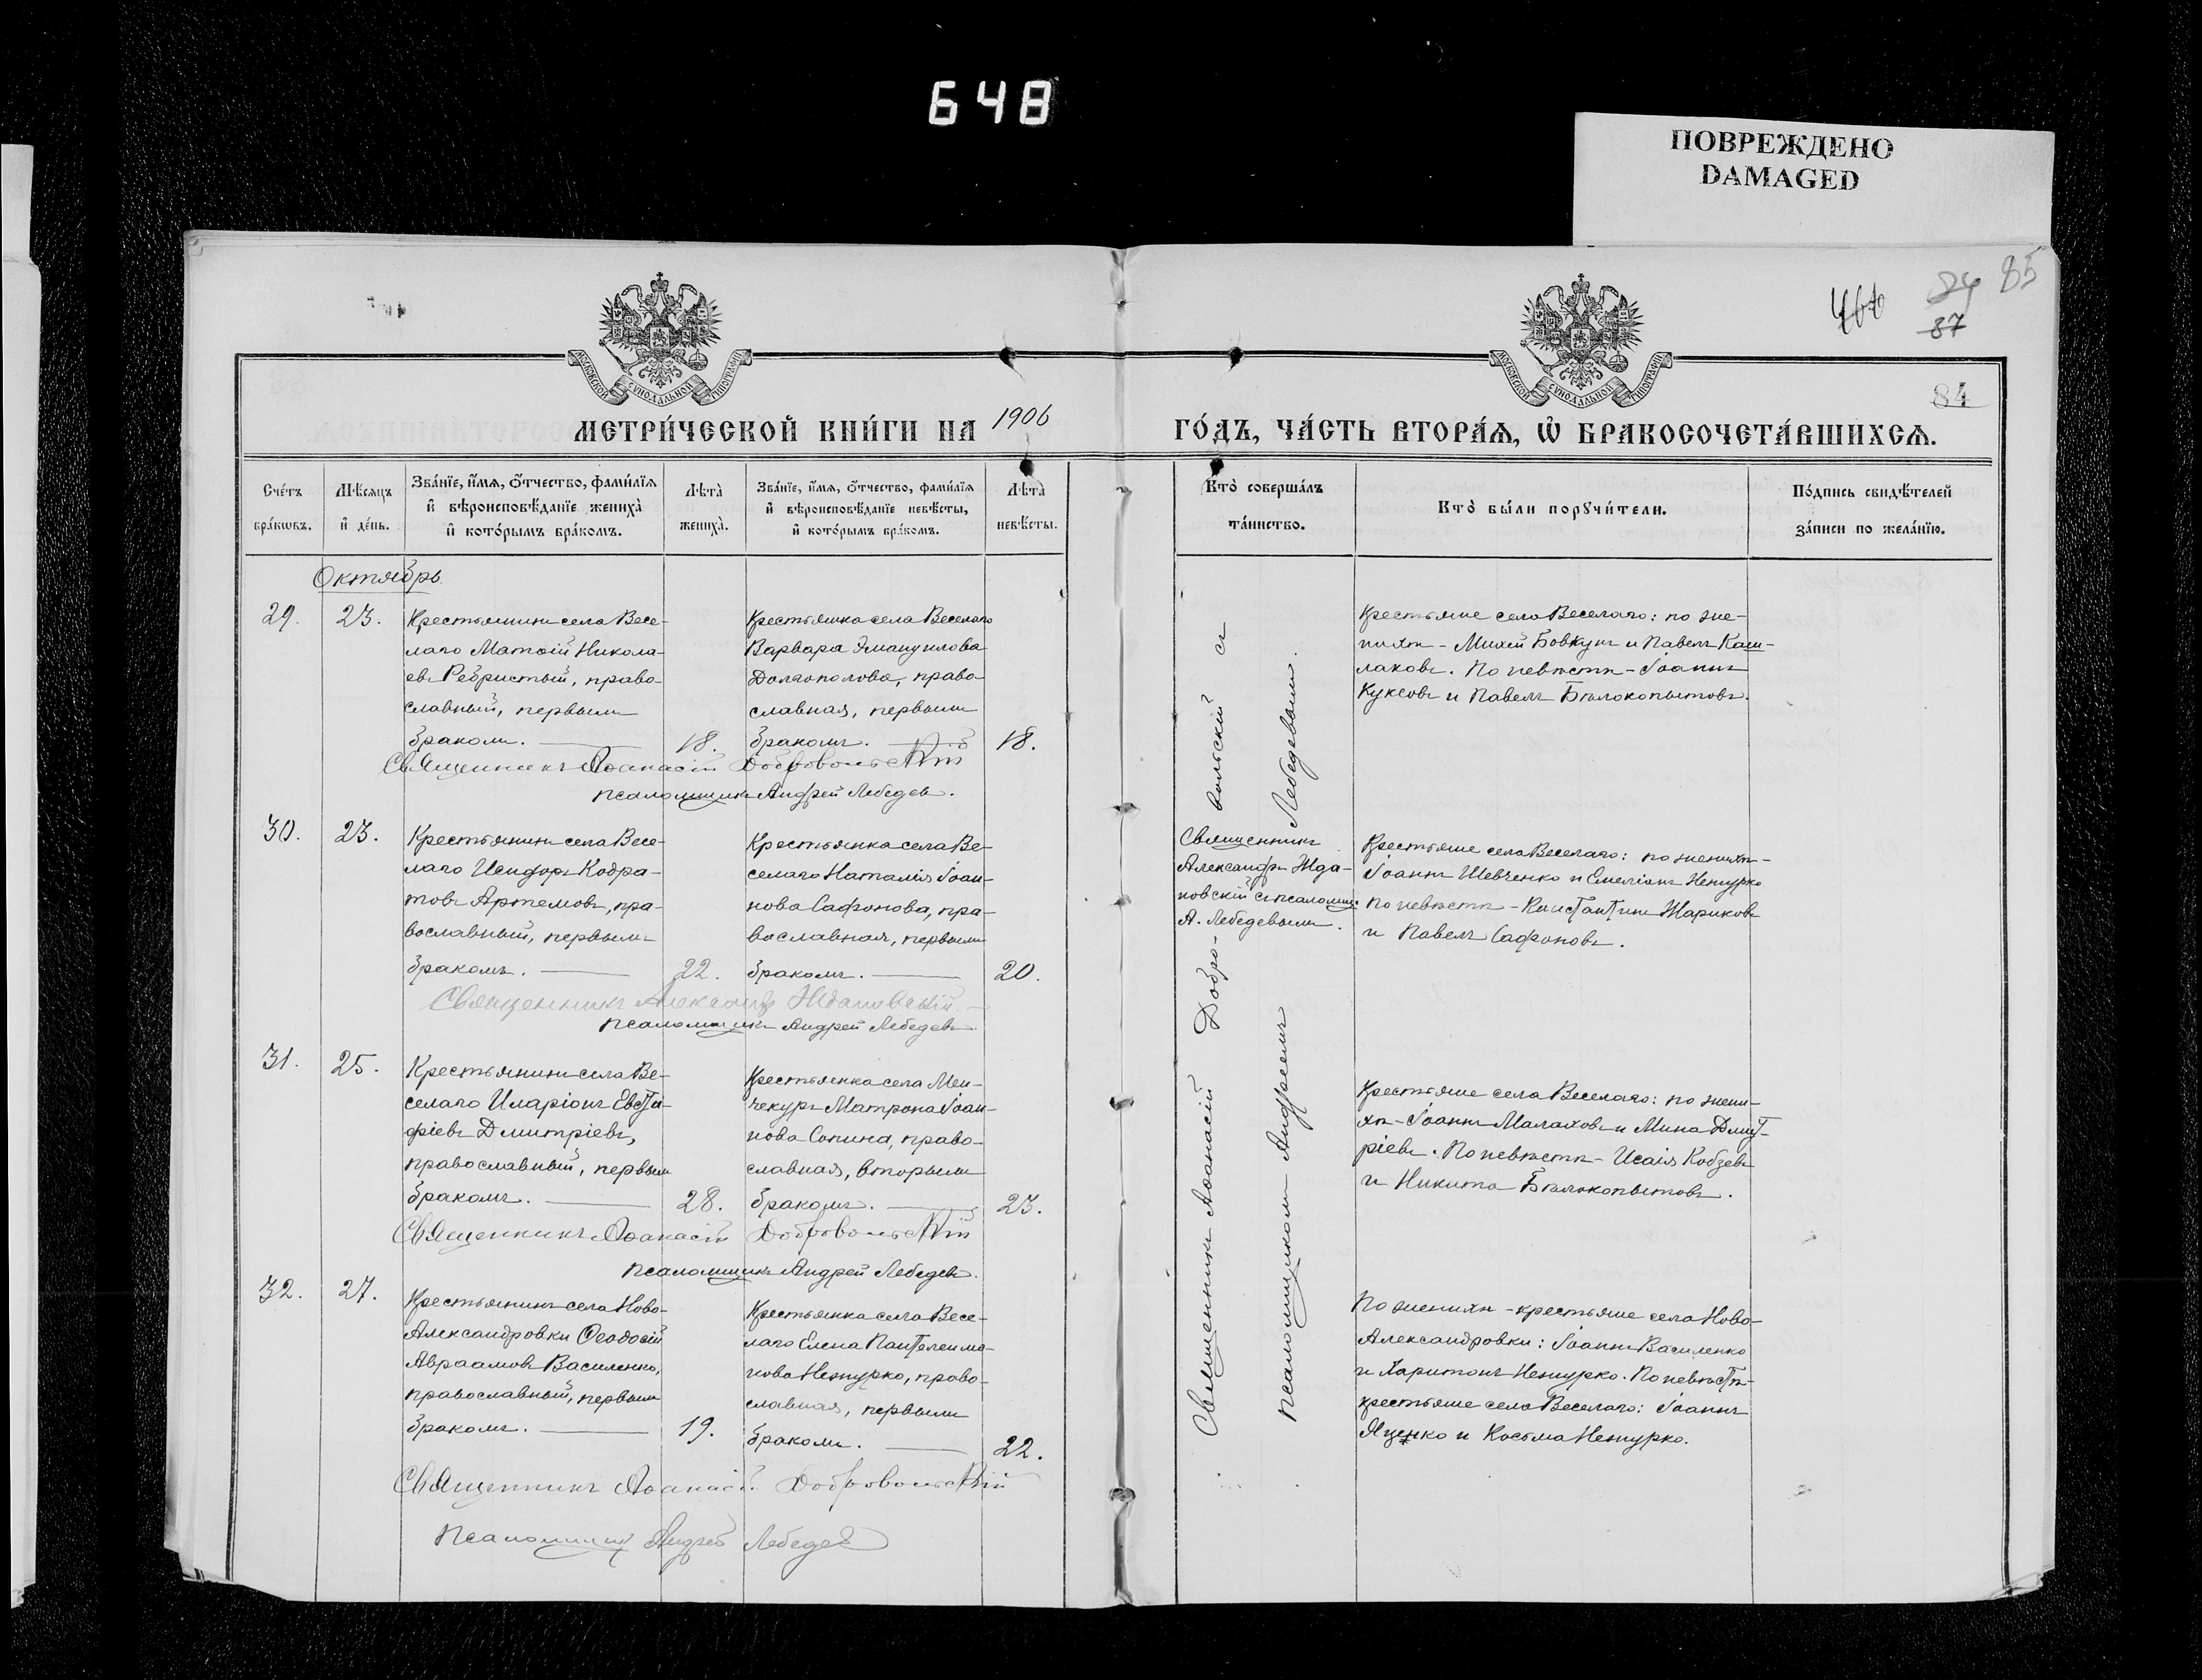 648
ПОВРЕЖДЕНО
DAMAGED
84 85
87
84
МОСКОВСКОЙ СѴНОДАЛЬНОЙ ТИПОГРАФІИ
МОСКОВСКОЙ СѴНОДАЛЬНОЙ ТИПОГРАФІИ
МЕТРИ́ЧЕСКОЙ КНИ́ГИ НА 1906
ГО́ДЪ, ЧА́СТЬ ВТОРА́Ѧ, Ѽ БРАКОСОЧЕТА́ВШИХСѦ.
Сче́тъ
бра́кѡвъ.
Мѣ́сѧцъ
и҆ де́нь.
Зва́нїе, и҆́мѧ, ѻ҆́тчество, фами́лїѧ
и҆ вѣроисповѣ́данїе жениха̀
и҆ кото́рымъ бра́комъ.
Лѣ́та̀
жениха̀.
Зва́нїе, и҆́мѧ, ѻ҆́тчество, фами́лїѧ
и҆ вѣроисповѣ́данїе невѣ́сты,
и҆ кото́рымъ бра́комъ.
Лѣ́та̀
невѣ́сты.
Кто̀ соверша́лъ
та́инство.
Кто̀ бы́ли порꙋчи́тели.
По́дпись свидѣ́телей
за́писи по жела́нїю.
Октябрь
29.
23.
Крестьянинъ села Весе-
лаго Матѳій Никола-
евъ Ребристый, право-
славный, первымъ
бракомъ.
18.
Крестьянка села Веселаго
Варвара Эмануилова
Долгополова, право-
славная, первымъ
бракомъ.
18.
Крестьяне села Веселаго: по же-
нихѣ - Михей Бовкунъ и Павелъ Каш-
лаковъ. По невѣстѣ - Іоаннъ
Куксовъ и Павелъ Бѣлокопытовъ.
Священникъ Аѳанасій Добровольскій
псаломщикъ Андрей Лебедевъ.
30.
23.
Крестьянинъ села Весе-
лаго Исидоръ Кодра-
товъ Артемовъ, пра-
вославный, первымъ
бракомъ.
22.
Крестьянка села Ве-
селаго Наталія Іоан-
нова Сафонова, пра-
вославная, первымъ
бракомъ.
20.
Священникъ
Александръ Жда-
новскій съ псаломщ.
А. Лебедевымъ.
Крестьяне села Веселаго: по женихѣ -
Іоаннъ Шевченко и Емеліанъ Нежурко
По невѣстѣ - Константинъ Жариковъ
и Павелъ Сафоновъ.
Священникъ Александръ Ждановскій.
псаломщикъ Андрей Лебедевъ.
31.
25.
Крестьянинъ села Ве-
селаго Иларіонъ Евста-
фіевъ Дмитріевъ,
православный, первымъ
бракомъ.
28.
Крестьянка села Мен-
чекуръ Матрона Іоан-
нова Сопина, право-
славная, вторымъ
бракомъ.
23.
Крестьяне села Веселаго: по жени-
хѣ - Іоаннъ Малаховъ и Мина Дмит-
ріевъ. По невѣстѣ - Исаія Кобзевъ
и Никита Бѣлокопытовъ.
Священникъ Аѳанасій Добровольскій
псаломщикъ Андрей Лебедевъ.
32.
27.
Крестьянинъ села Ново-
Александровки Ѳеодосій
Авраамовъ Василенко,
православный, первымъ
бракомъ.
19.
Крестьянка села Весе-
лаго Елена Пантелеимо-
нова Нежурко, право-
славная, первымъ
бракомъ.
22.
По женихѣ - крестьяне села Ново-
Александровки: Іоаннъ Василенко
и Харитонъ Нежурко. По невѣстѣ -
крестьяне села Веселаго: Іоаннъ
Яценко и Косьма Нежурко.
Священникъ Аѳанасій Добровольскій
псаломщикъ Андрей Лебедевъ
Священникъ Аѳанасій Добро- вольскій съ
псаломщикомъ Андреемъ Лебедевымъ.